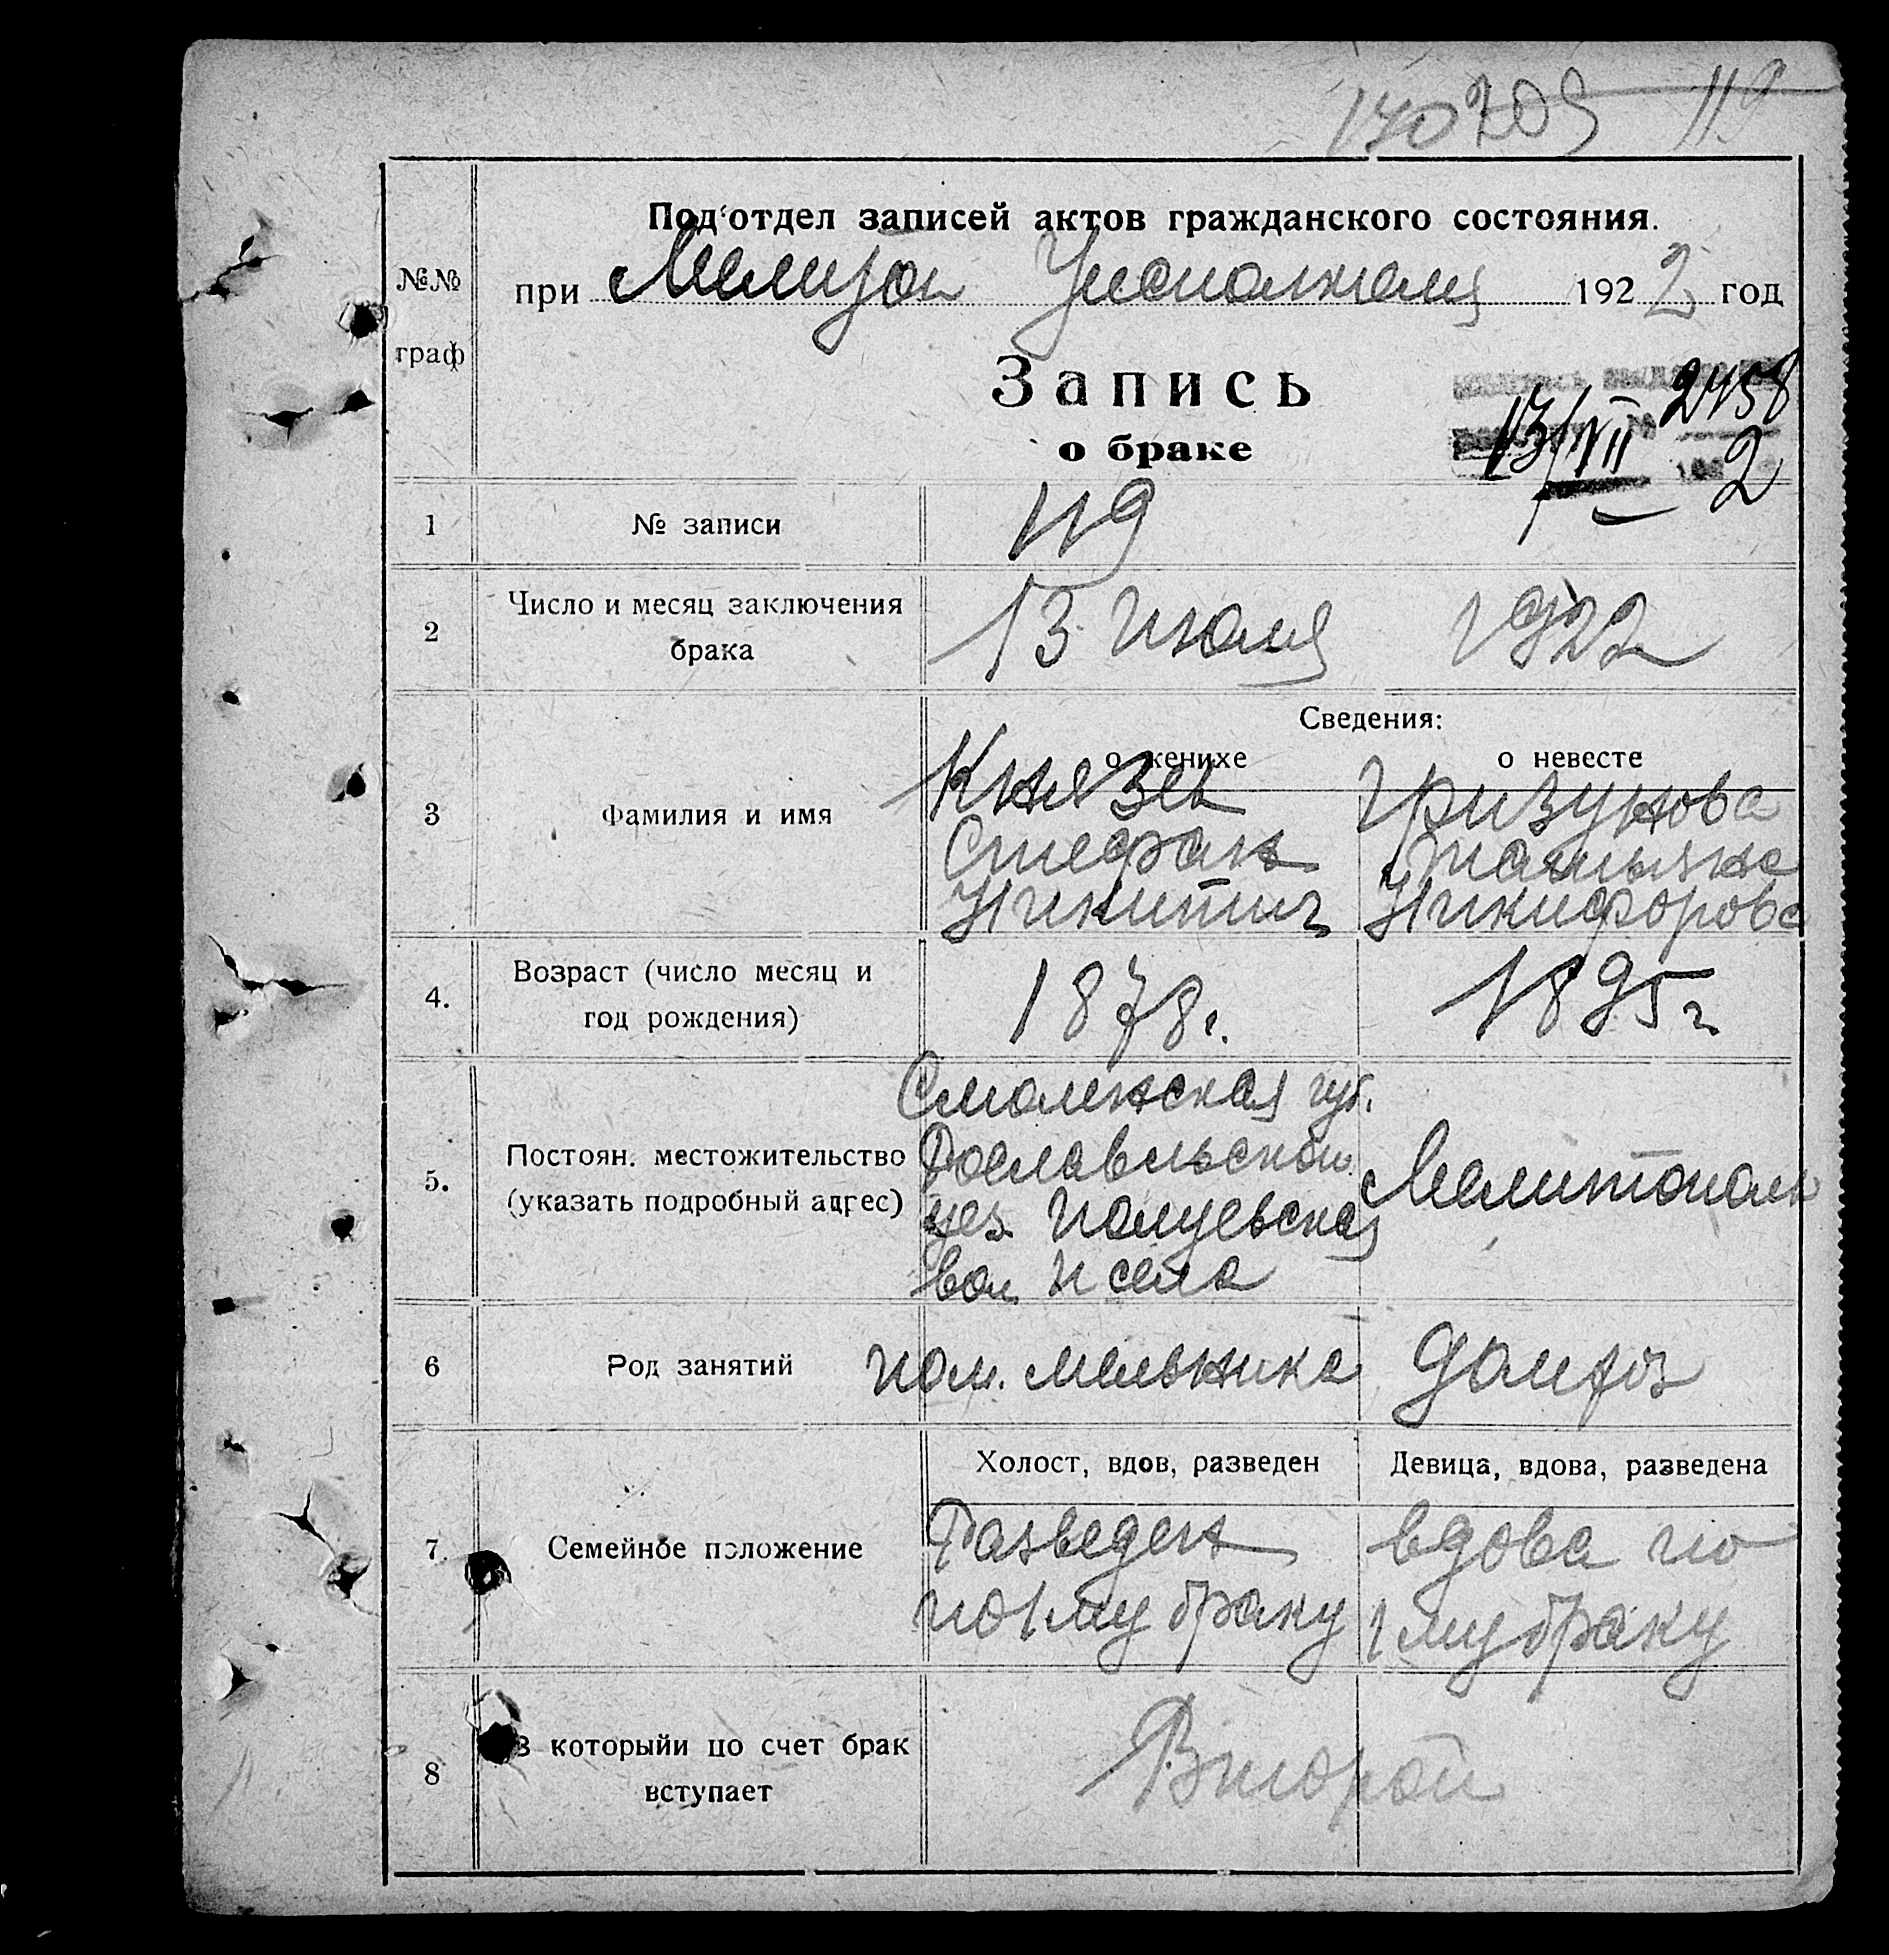 119
Под‘отдел записей актов гражданского состояния.
№№
граф
при Мелитоп Уисполкома 1922 год
Запись
о браке
2458
13/VII 2
1 № записи 119
2 Число и месяц заключения
брака
13 июля 1922
Сведения:
о женихе о невесте
3 Фамилия и имя
Князев Гризунова
Стефан Татьяна
Никитич Никифоровa
4. Возраст (число месяц и
год рождения)
1878г. 1895г
5. Постоян. местожительство
(указать подробный адрес)
Смоленская губ.
Рославльской
уез
вол и села
Мелитополь
6 Род занятий пом. мельника домхоз
Холост, вдов, разведен Девица, вдова, разведена
7 Семейное положение
Разведен вдова по
по 1му браку 1му браку
8 В которыйи по счет брак
вступает
Второй